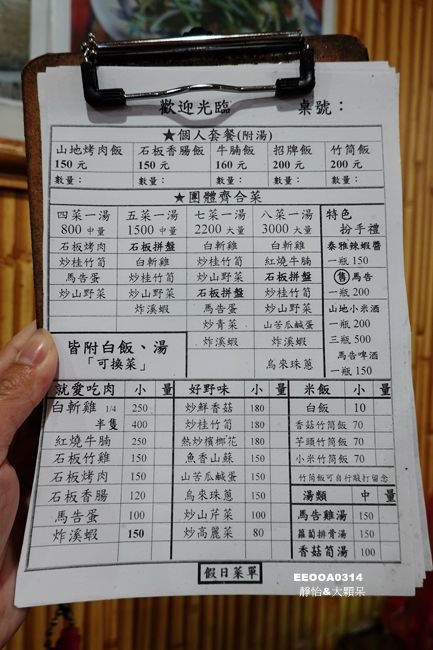 歡迎光臨 桌號：
★個人套餐(附湯)
山地烤肉飯 石板香腸飯 牛腩飯 招牌飯 竹筒飯
150元 150元 160元 200元 200元
數量： 數量： 數量： 數量： 數量：
★團體齊合菜
四菜一湯 五菜一湯 七菜一湯 八菜一湯 特色
800中量 1500中量 2200大量 3000大量 扮手禮
石板烤肉 石板拼盤 白斬雞 白斬雞 泰雅辣蝦醬
炒桂竹筍 白斬雞 炒桂竹筍 紅燒牛腩 一瓶150
馬告蛋 炒桂竹筍 炒山野菜 石板拼盤 舊馬告
炒山野菜 炒山野菜 石板拼盤 炒桂竹筍 一瓶200
炸溪蝦 馬告蛋 炒山野菜 山地小米酒
炒青菜 山苦瓜鹹蛋 一瓶200
炸溪蝦 炸溪蝦 三瓶500
烏來珠蔥 馬告啤酒
一瓶150
皆附白飯、湯
「可換菜」
就愛吃肉 小 量 好野味 小 量 米飯 小 量
白斬雞 1/4 250 炒鮮香菇 180 白飯 10
半隻 400 炒桂竹筍 180 香菇竹筒飯 70
紅燒牛腩 250 熱炒檳榔花 180 芋頭竹筒飯 70
石板竹雞 150 魚香山蘇 150 小米竹筒飯 70
石板烤肉 150 山苦瓜鹹蛋 150 竹筒飯可自行敲打留念
石板香腸 120 烏來珠蔥 150 湯類 中 量
馬告蛋 100 炒山芹菜 100 馬告雞湯 150
炸溪蝦 150 炒高麗菜 80 蘿蔔排骨湯 150
香菇筍湯 100
假日菜單
EEOOA0314
靜怡&大顆呆